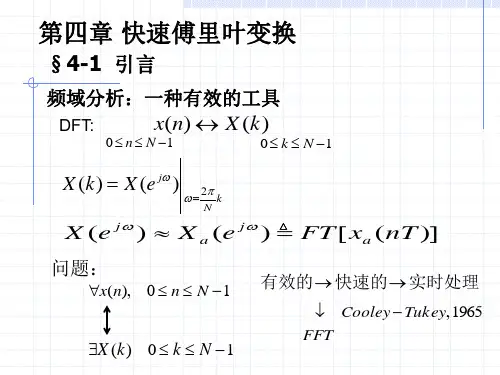 第四章 快速傅里叶变换
§4-1 引言
频域分析：一种有效的工具
DFT: x(n) ↔ X(k)
0 ≤ n ≤ N −1 0 ≤ k ≤ N −1
X(k) = X(e^{jω})|_{ω=\frac{2π}{N}k}
X(e^{jω}) ≈ X_a(e^{jω}) ≜ FT[x_a(nT)]
问题：
∀x(n), 0 ≤ n ≤ N −1
∃X(k) 0 ≤ k ≤ N −1
有效的→快速的→实时处理
↓ Cooley − Tukey, 1965
FFT